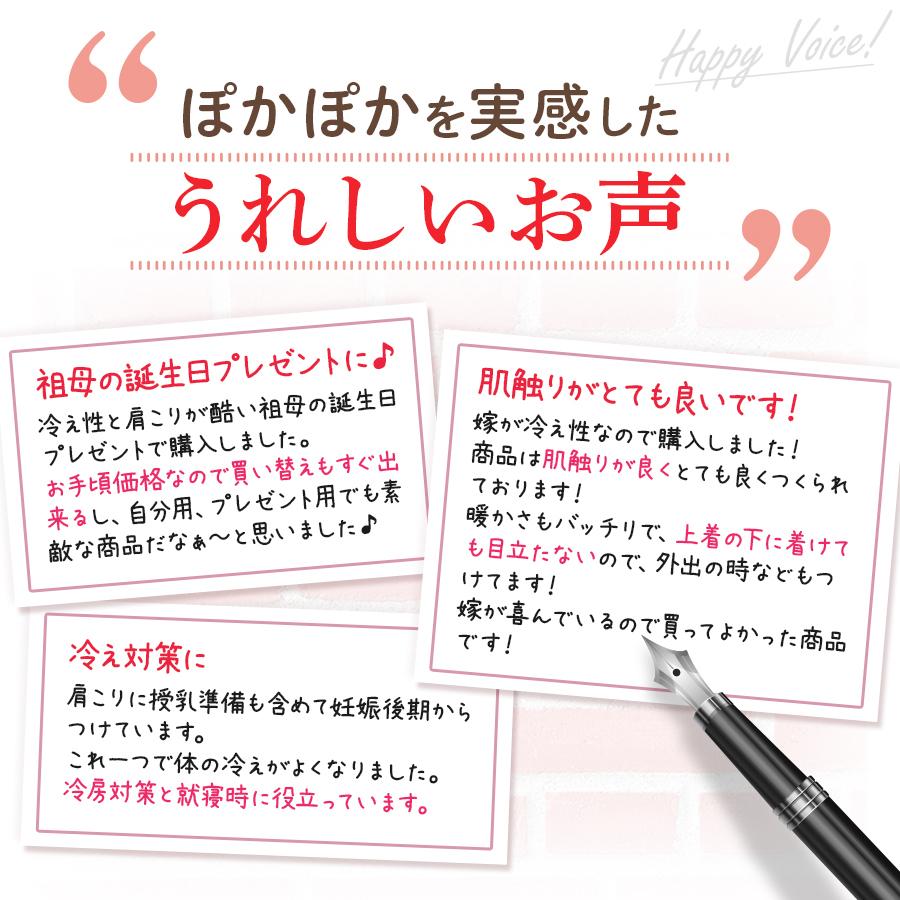 Happy Voice!
ぽかぽかを実感した
うれしいお声
祖母の誕生日プレゼントに♪
冷え性と肩こりが酷い祖母の誕生日
プレゼントで購入しました。
お手頃価格なので買い替えもすぐ出
来るし、自分用、プレゼント用でも素
敵な商品だなぁ〜と思いました♪
肌触りがとても良いです!
嫁が冷え性なので購入しました!
商品は肌触りが良くとても良くつくられ
ております!
暖かさもバッチリで、上着の下に着けて
も目立たないので、外出の時などもつ
けてます!
嫁が喜んでいるので買ってよかった商品
です!
冷え対策に
肩こりに授乳準備も含めて妊娠後期から
つけています。
これ一つで体の冷えがよくなりました。
冷房対策と就寝時に役立っています。